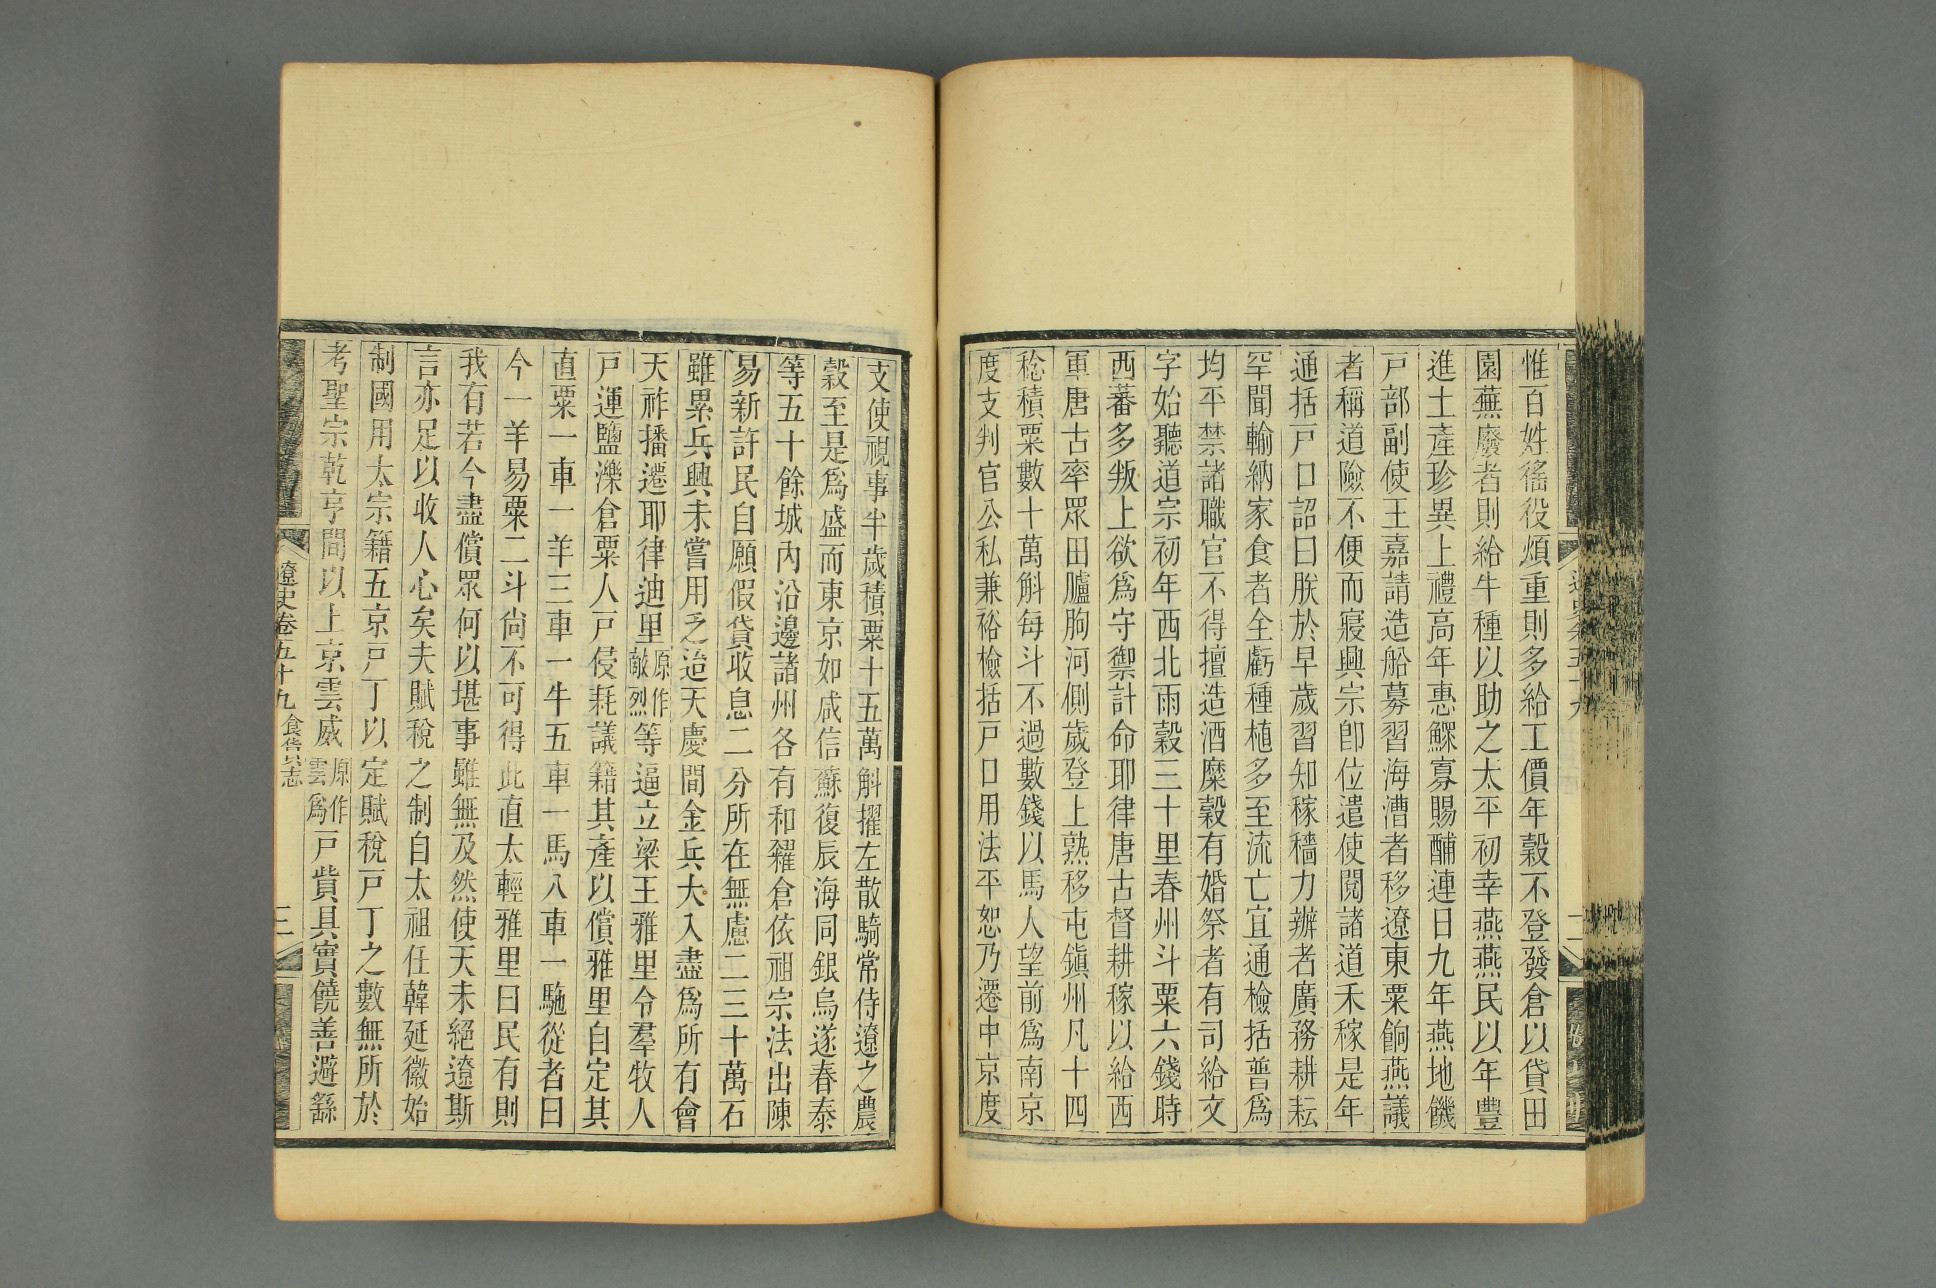 惟百姓徭役煩重則多給工價年穀不登發倉以貸田
園蕪廢者則給牛種以助之太平初幸燕燕民以年豐
進土產珍異上禮高年惠鰥寡賜酺連日九年燕地饑
戸部副使王嘉請造船募習海漕者移遼東粟餉燕議
者稱道險不便而寢興宗卽位遣使閱諸道禾稼是年
通括戸口詔曰朕於早歲習知稼穡力辦者廣務耕耘
罕聞輸納家食者全虧種植多至流亡宜通檢括普爲
均平禁諸職官不得擅造酒糜穀有婚祭者有司給文
字始聽道宗初年西北雨穀三十里春州斗粟六錢時
西蕃多叛上欲爲守禦計命耶律唐古督耕稼以給西
軍唐古率眾田臚朐河側歲登上熟移屯鎭州凡十四
稔積粟數十萬斛每斗不過數錢以馬人望前爲南京
度支判官公私兼裕檢括戸口用法平恕乃遷中京度
支使視事半歲積粟十五萬斛擢左散騎常侍遼之農
穀至是爲盛而東京如咸信蘇復辰海同銀烏遂春泰
等五十餘城內沿邊諸州各有和糴倉依祖宗法出陳
易新許民自願假貸收息二分所在無慮二三十萬石
雖累兵興未嘗用乏迨天慶間金兵大入盡爲所有會
天祚播遷耶律迪里原作敵烈等逼立梁王雅里令羣牧人
戸運鹽濼倉粟人戸侵耗議籍其產以償雅里自定其
直粟一車一羊三車一牛五車一馬八車一駞從者曰
今一羊易粟二斗尙不可得此直太輕雅里曰民有則
我有若今盡償眾何以堪事雖無及然使天未絕遼斯
言亦足以收人心矣夫賦稅之制自太祖任韓延徽始
制國用太宗籍五京戸丁以定賦稅戸丁之數無所於
考聖宗乾亨間以上京雲威原作雲爲戸貲具實饒善避繇
遼史卷五十九 食貨志 三